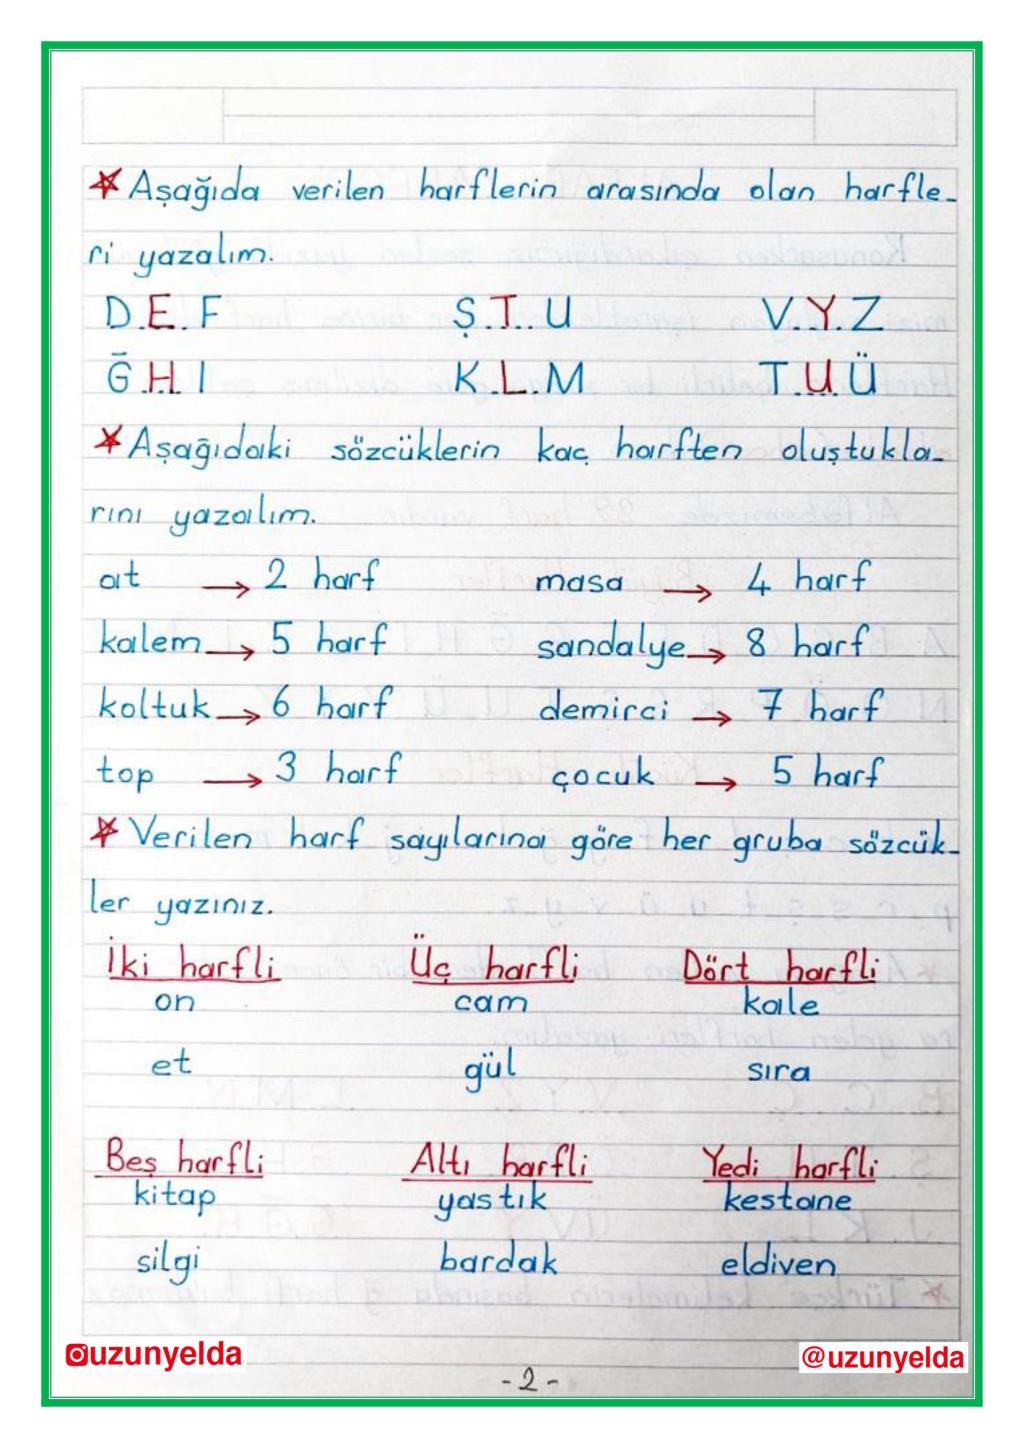 ★ Aşağıda verilen harflerin arasında olan harfle-
ri yazalım.
D.E.F Ş.T.U V.Y.Z
Ğ.H.I K.L.M T.U.Ü
★ Aşağıdaki sözcüklerin kaç harften oluştukla-
rını yazalım.
at → 2 harf masa → 4 harf
kalem → 5 harf sandalye → 8 harf
koltuk → 6 harf demirci → 7 harf
top → 3 harf çocuk → 5 harf
★ Verilen harf sayılarına göre her gruba sözcük-
ler yazınız.
İki harfli Üç harfli Dört harfli
on cam kale
et gül sıra
Beş harfli Altı harfli Yedi harfli
kitap yastık kestane
silgi bardak eldiven
uzunyelda @uzunyelda
-2-